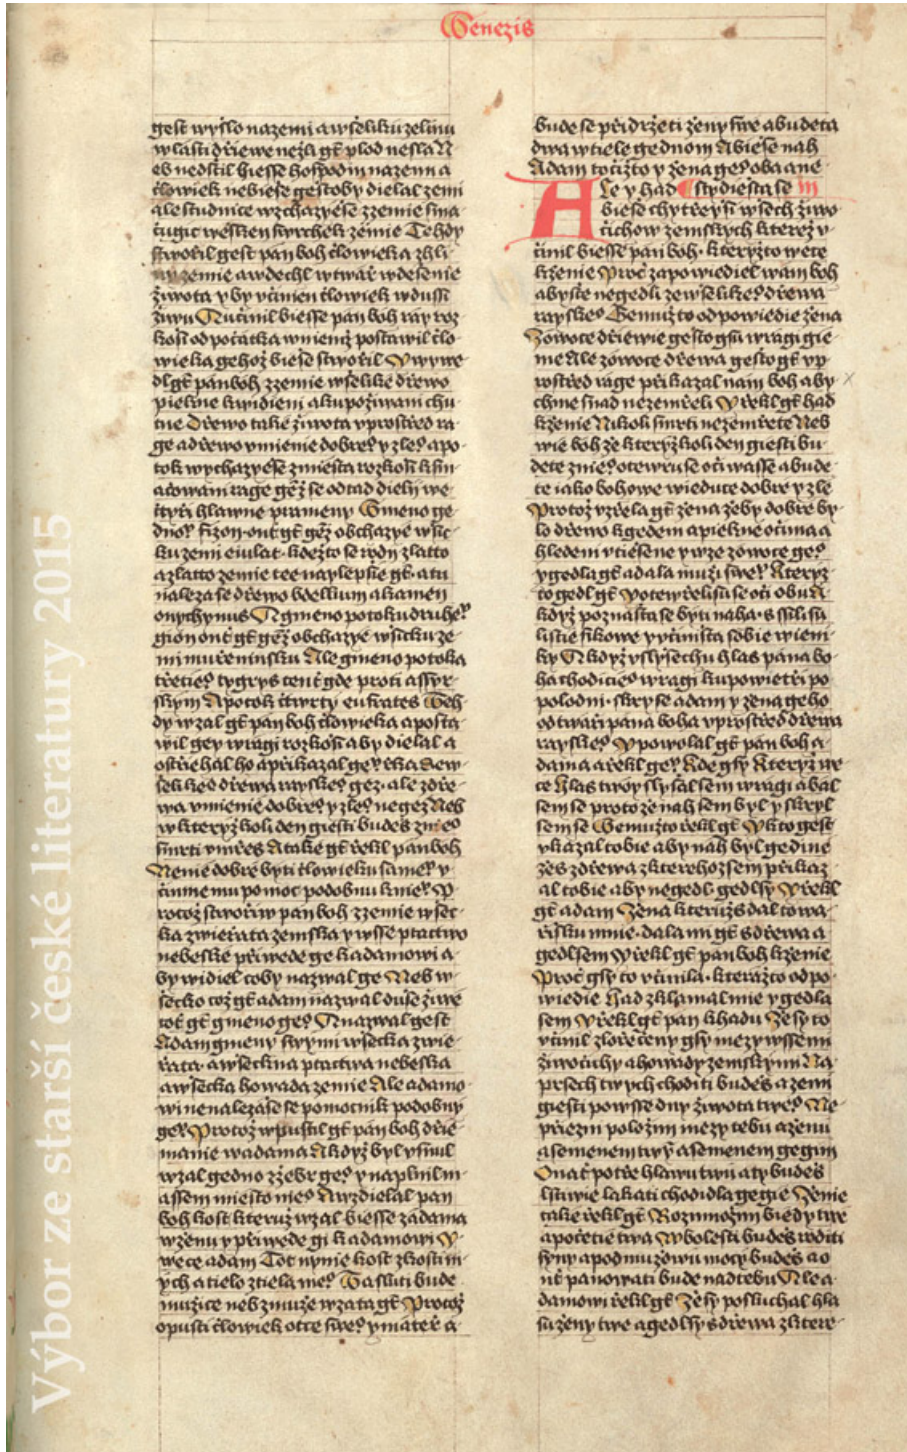 Genezis
gest wyšlo nazemi awšelikú zelinu
wlasti dřiewe nežli gt plod nesla N
eb nedštil biesse hospodin nazemi a
člowiek nebieše gestoby dielal zemi
ale studnice wzchazyéše zzemie sma
čugic wešken swrchek zemie Tehdy
stwořil gest pan boh člowieka zhli
ny zemie awdechl wtwař wdešenie
žiwota y by včinien člowiek wdussi
žiwu Nučinil biesse pan boh ray roz
koši odpočatka wniemž postawil člo
wieka gehož bieše stwořil Vwywe
dl gt pan boh zzemie wšeliké dřewo
piekné kwidieni akupožiwani chu
tné Dřewo také žiwota vprostřed ra
ge adřewo vmienie dobreº y zleº apo
tok wychazyéše zmiesta rozkoši ksm
ačowani rage genž se odtad dielí we
čtyři hlawne prameny Gmeno ge
dnoº fizon ont gt genž obchazye wšic
ku zemi eiulat kdežto se rodij zlatto
azlatto zemie tee naylepšie gt atu
naleza se dřewo bdellium akamen
onychynus A gmeno potoku druheº
gión ont gt genž obchazye wšicku ze
mi muřeninsku Ale gmeno potoka
třetieº tygrys tent gde proti assyr
ským Apotok čtwrtý eufrates Teh
dy wzal gt pan boh člowieka aposta
wil gey wragi rozkoši aby dielal a
ostřiehal ho apřikazal geº řka Sew
šelikeº dřewa rayskeº gez ale zdře
wa vmienie dobreº y zleº negez Neb
wkteryžkoli den giesti budeš zneº
smrti vmřeš Atake gt řekl pan boh
Nenie dobré byti člowieku sameº v
čiňme mu pomoc podobnu knieº P
rotož stwořiw pan boh zzemie wšec
ka zwieřata zemska y wšse ptactwo
nebeské přiwede ge kadamowi a
by widiel coby nazwal ge Neb w
šecko což gt adam nazwal duše žiwé
toť gt gmeno geº Nnazwal gest
Adam gmeny swymi wšecka zwie
řata awšeckna ptactwa nebeska
awšecka howada zemie Ale adamo
wi nenalezáše se pomocník podobny
geº Protož wpustil gt pan boh dřie
manie wadama Akdyž byl vsnul
wzal gedno zžebr geº y naplnil m
assem miesto nieº Awzdielal pan
boh kost kteruž wzal biesse zadama
wženu y přiwede gi kadamowi V
wece adam Toť nynie kost zkosti m
ých atielo ztiela meº Tasluti bude
mužice neb zmuže wzata gt Protož
opusti člowiek otce sweº y mateř a
bude se přidržeti ženy swe abudeta
dwa wtiele gednom Abieše nah
Adam točižto y žena geº oba a ne
stydiesta se III
Ale y had
bieše chytřeyší wšech žiwo
čichow zemskych kterež v
činil biesse pan boh kteryžto wece
kženie Proč zapowiediel wam boh
abyste negedli zewšelikeº dřewa
rayskeº Gemužto odpowiedie žena
Zowoce dřiewie gesto gsú wragi gie
me Ale zowoce dřewa gesto gt vp
rostřed rage přikazal nam boh aby
chme snad nezemřeli Vřekl gt had
kženie Nikoli smrti nezemřete Neb
wie boh že kteryžkoli den giesti bu
dete zneº otewru se oči wasse abude
te iako bohowe wieduce dobré y zlé
Protož vzřela gt žena žeby dobré by
lo dřewo kgedem apiekné očima a
hledem vtiešené y wze zowoce geº
y gedla gt adala muži sweº Kteryž
to gedl gt Yotewřeli su se oči obu A
když poznasta se byti naha sšili su
listie fikowe y včinista sobie wieni
ky A když vslyšechu hlas pana bo
ha chodicieº wragi kupowietři po
polodni skry se adam y žena geho
od twaři pana boha vprostřed dřewa
rayskeº Vpowolal gt pan boh a
dama ařekl geº Kde gsy Kteryž we
ce Hlas twoy slyšal sem wragi abal
sem se proto že nah sem byl y skryl
sem se Gemužto řekl gt Ykto gest
vkazal tobie aby nah byl gedine
žes zdřewa zkterehož sem přikaz
al tobie aby negedl gedlsy Vřekl
gt adam Žena kterúžs dal towa
řišku mnie dala mi gt sdřewa a
gedl sem Vřekl gt pan boh kženie
Proč gsy to včinila kteražto odpo
wiedie Had zklamal mie y gedla
sem Vřekl gt pan khadu Žesy to
včinil zlořečený gsy mezy wssemi
žiwočichy ahowady zemskymi Na
prsech twých choditi budeš azemi
giesti powsse dny žiwota tweº Ne
přiezni položim mezy tebu aženu
asemenem twým asemenem gegim
Onať potře hlawu twú aty budeš
lstiwie lakati chodidla gegie Ženie
take řekl gt Rozmnožim biedy twe
apočetie twa Wbolesti budeš roditi
syny apod mužowu mocy budeš ao
nť panowati bude nad tebu Ale a
damowi řekl gt Žesy posluchal hla
su ženy twe agedlsy sdřewa zktere
Výbor ze starší české literatury 2015